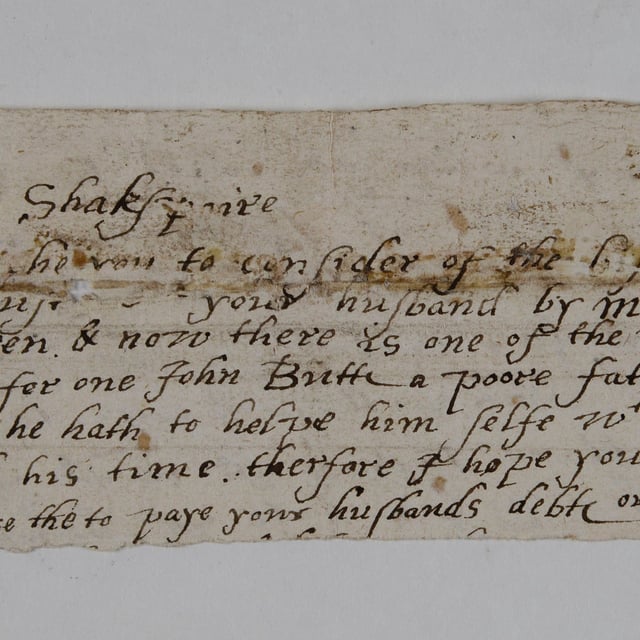 Shakspaire
you to consider of the
your husband by
en. & now there is one of the
for one John Butte a poore fat
he hath to helpe him selfe wt
his time. therfore I hope you
the to paye your husbands debte